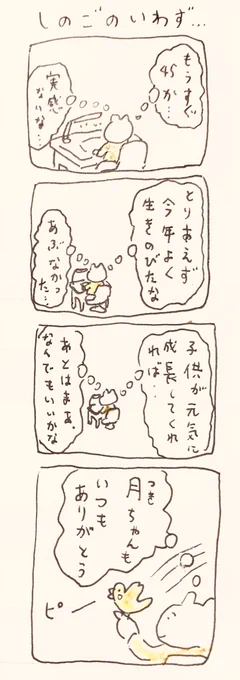 しのごのいわず…
もうすぐ
45か…
実感
ないな…
とりあえず
今年よく
生きのびたな
あぶなかっ
た…
子供が元気に
成長してくれ
れば…
あとはまあ、
なんでもいいかな
月ちゃんも
つき
いつも
ありがとう
ピー